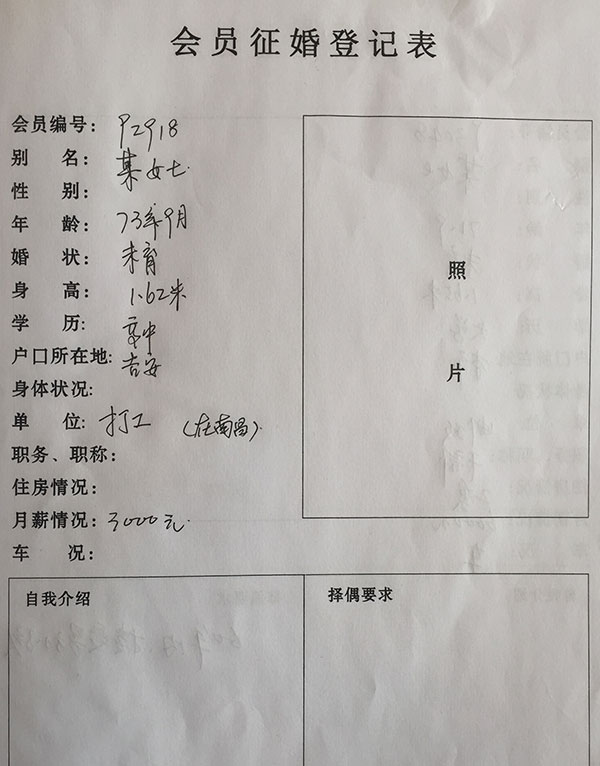 会员征婚登记表
会员编号: P2918
别 名: 某女士
性 别:
年 龄: 73年9月
婚 状: 未育
身 高: 1.62米
学 历: 高中
户口所在地: 吉安
身体状况:
单 位: 打工 (在南昌)
职务、职称:
住房情况:
月薪情况: 3000元
车 况:
照
片
自我介绍
择偶要求